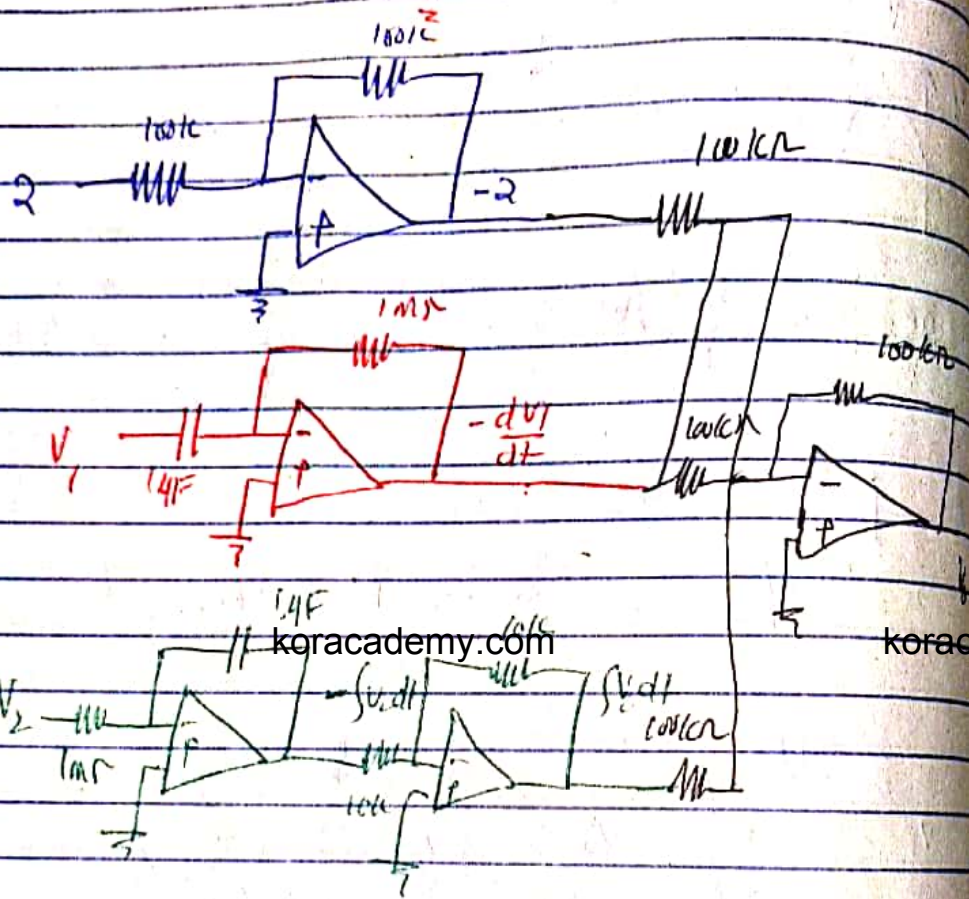 100K
2
100K
2
-
+
-2
100KΩ
1MΩ
V1
1µF
-
+
-dV1/dt
100KΩ
100KΩ
-
+
1µF
koracademy.com
korac
V2
1MΩ
-
+
-∫V2dt
10K
10K
-
+
∫V2dt
100KΩ